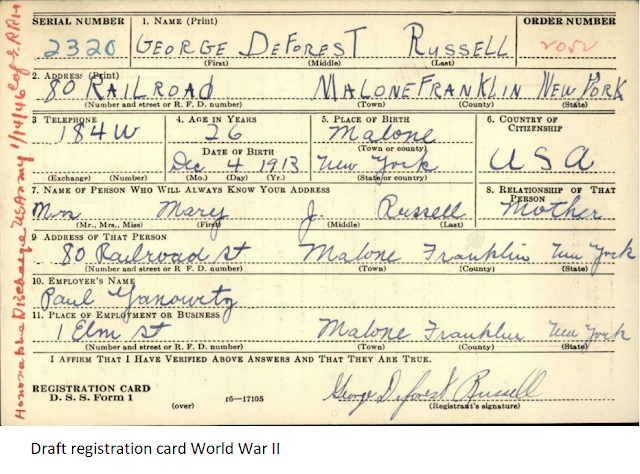 SERIAL NUMBER 1. NAME (Print) ORDER NUMBER
2320 GEORGE DEFOREST RUSSELL
(First) (Middle) (Last)
2. ADDRESS (Print)
80 RAILROAD MALONE FRANKLIN NEW YORK
(Number and street or R. F. D. number) (Town) (County) (State)
3 TELEPHONE 4. AGE IN YEARS 5. PLACE OF BIRTH 6. COUNTRY OF CITIZENSHIP
184W 26 Malone
(Town or county)
DATE OF BIRTH
Dec 4 1913 New York USA
(Exchange) (Number) (Mo.) (Day) (Yr.) (State or country)
7. NAME OF PERSON WHO WILL ALWAYS KNOW YOUR ADDRESS 8. RELATIONSHIP OF THAT PERSON
Mrs Mary J. Russell Mother
(Mr., Mrs., Miss) (First) (Middle) (Last)
9 ADDRESS OF THAT PERSON
80 Railroad St Malone Franklin New York
(Number and street or R. F. D. number) (Town) (County) (State)
10. EMPLOYER'S NAME
Paul Yanowitz
11. PLACE OF EMPLOYMENT OR BUSINESS
1 Elm St Malone Franklin New York
(Number and street or R. F. D. number) (Town) (County) (State)
I AFFIRM THAT I HAVE VERIFIED ABOVE ANSWERS AND THAT THEY ARE TRUE.
REGISTRATION CARD
D. S. S. Form 1
(over) 16—17105
George Deforest Russell
(Registrant's signature)
Honorable Discharge US Army 1/14/46
Draft registration card World War II